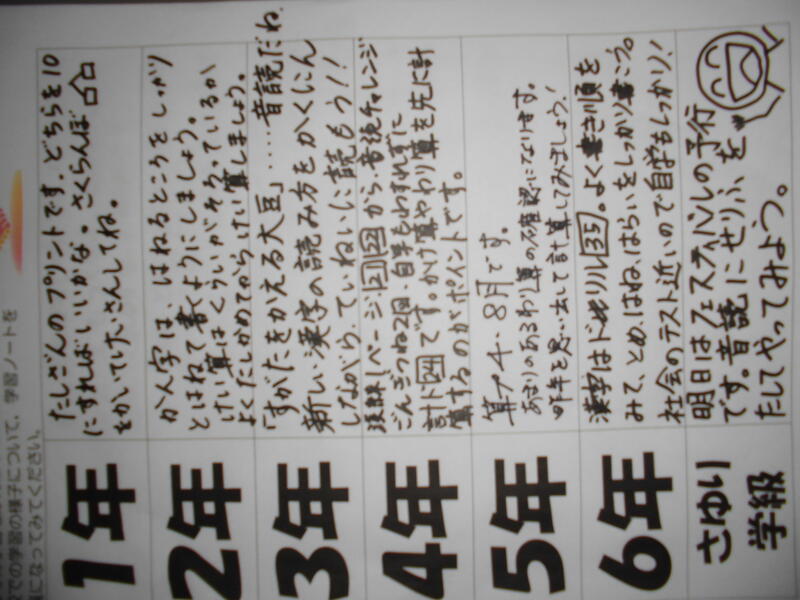 学習の様子について、学習ノートを
になってみてください。
1年
たしざんのプリントです。どちらを10
にすればいいかな。さくらんぼ
をかいてけいさんしてね。
2年
かん字は、はねるところをしっかり
とはねて書くようにしましょう。
けい算はくらいがそろっているか
よくたしかめてからけい算しましょう。
3年
「すがたをかえる大豆」……音読だね。
新しい漢字の読み方をかくにん
しながら、ていねいに読もう!!
4年
ページ 21 22 から、音読チャレンジ
ごんぎつね2回、自学もわすれずに
計ド24です。かけ算やわり算を先に計
算するのがポイントです。
5年
算プ4・8月です。
あまりのあるわり算の確認になります。
昨年を思い出して計算してみましょう!
6年
漢字はドリル35。よく書き順を
みて、とめ、はね、はらいをしっかり書こう。
社会のテスト近いので自学もしっかり!
さゆり
学級
明日はフェスティバルの予行
です。音読にせりふを
たしてやってみよう。